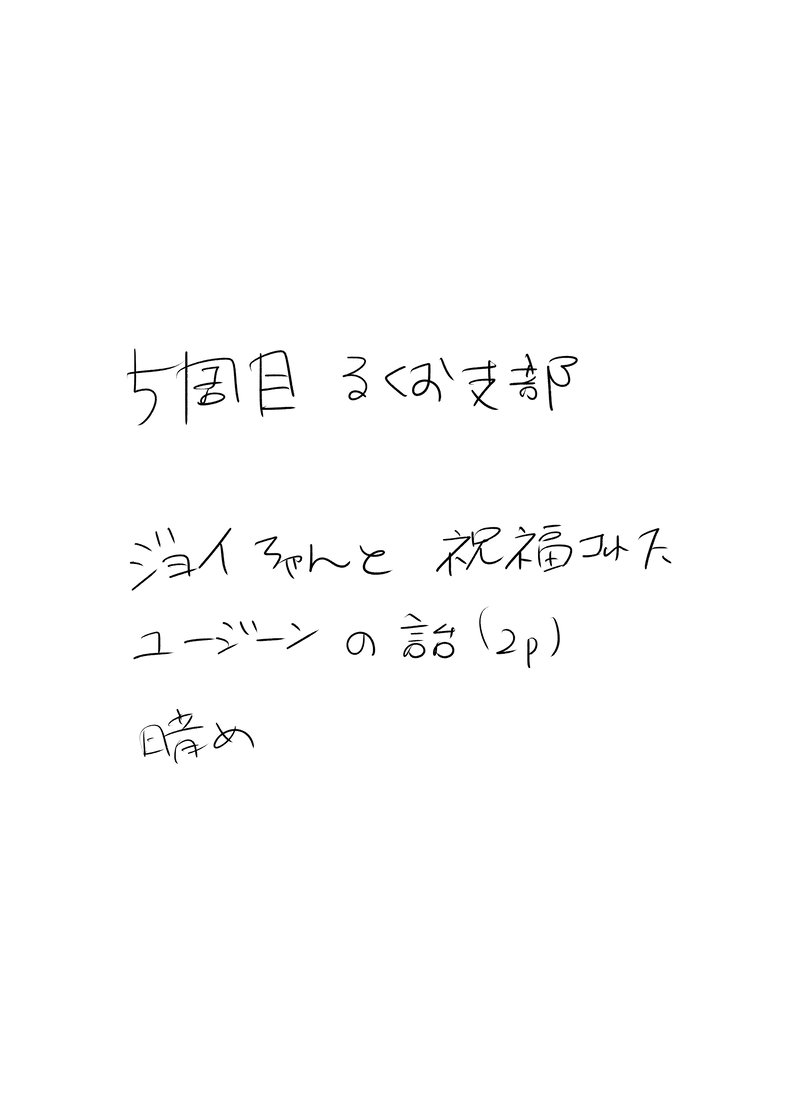 5個目 るくお支部
ジョイちゃんと 祝福された
ユージーンの話(2p)
暗め